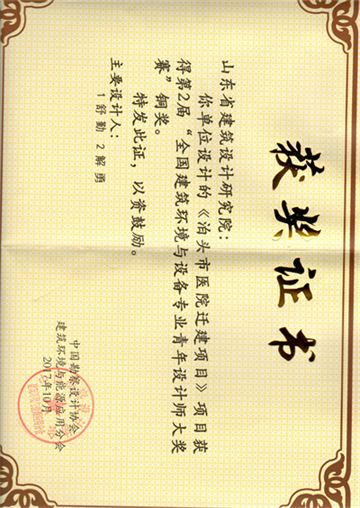 获奖证书
山东省建筑设计研究院：
你单位设计的《泊头市医院迁建项目》项目获
得第2届“全国建筑环境与设备专业青年设计师大奖
赛”铜奖。
特发此证，以资鼓励。
主要设计人：
1 舒 勤 2 解 勇
中国勘察设计协会
建筑环境与能源应用分会
2017年10月